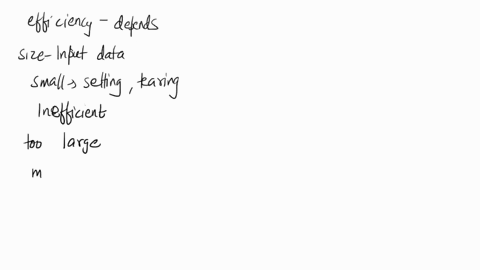 efficiency - depends
size - Input data
small → setting, tearing
Inefficient
too large
m